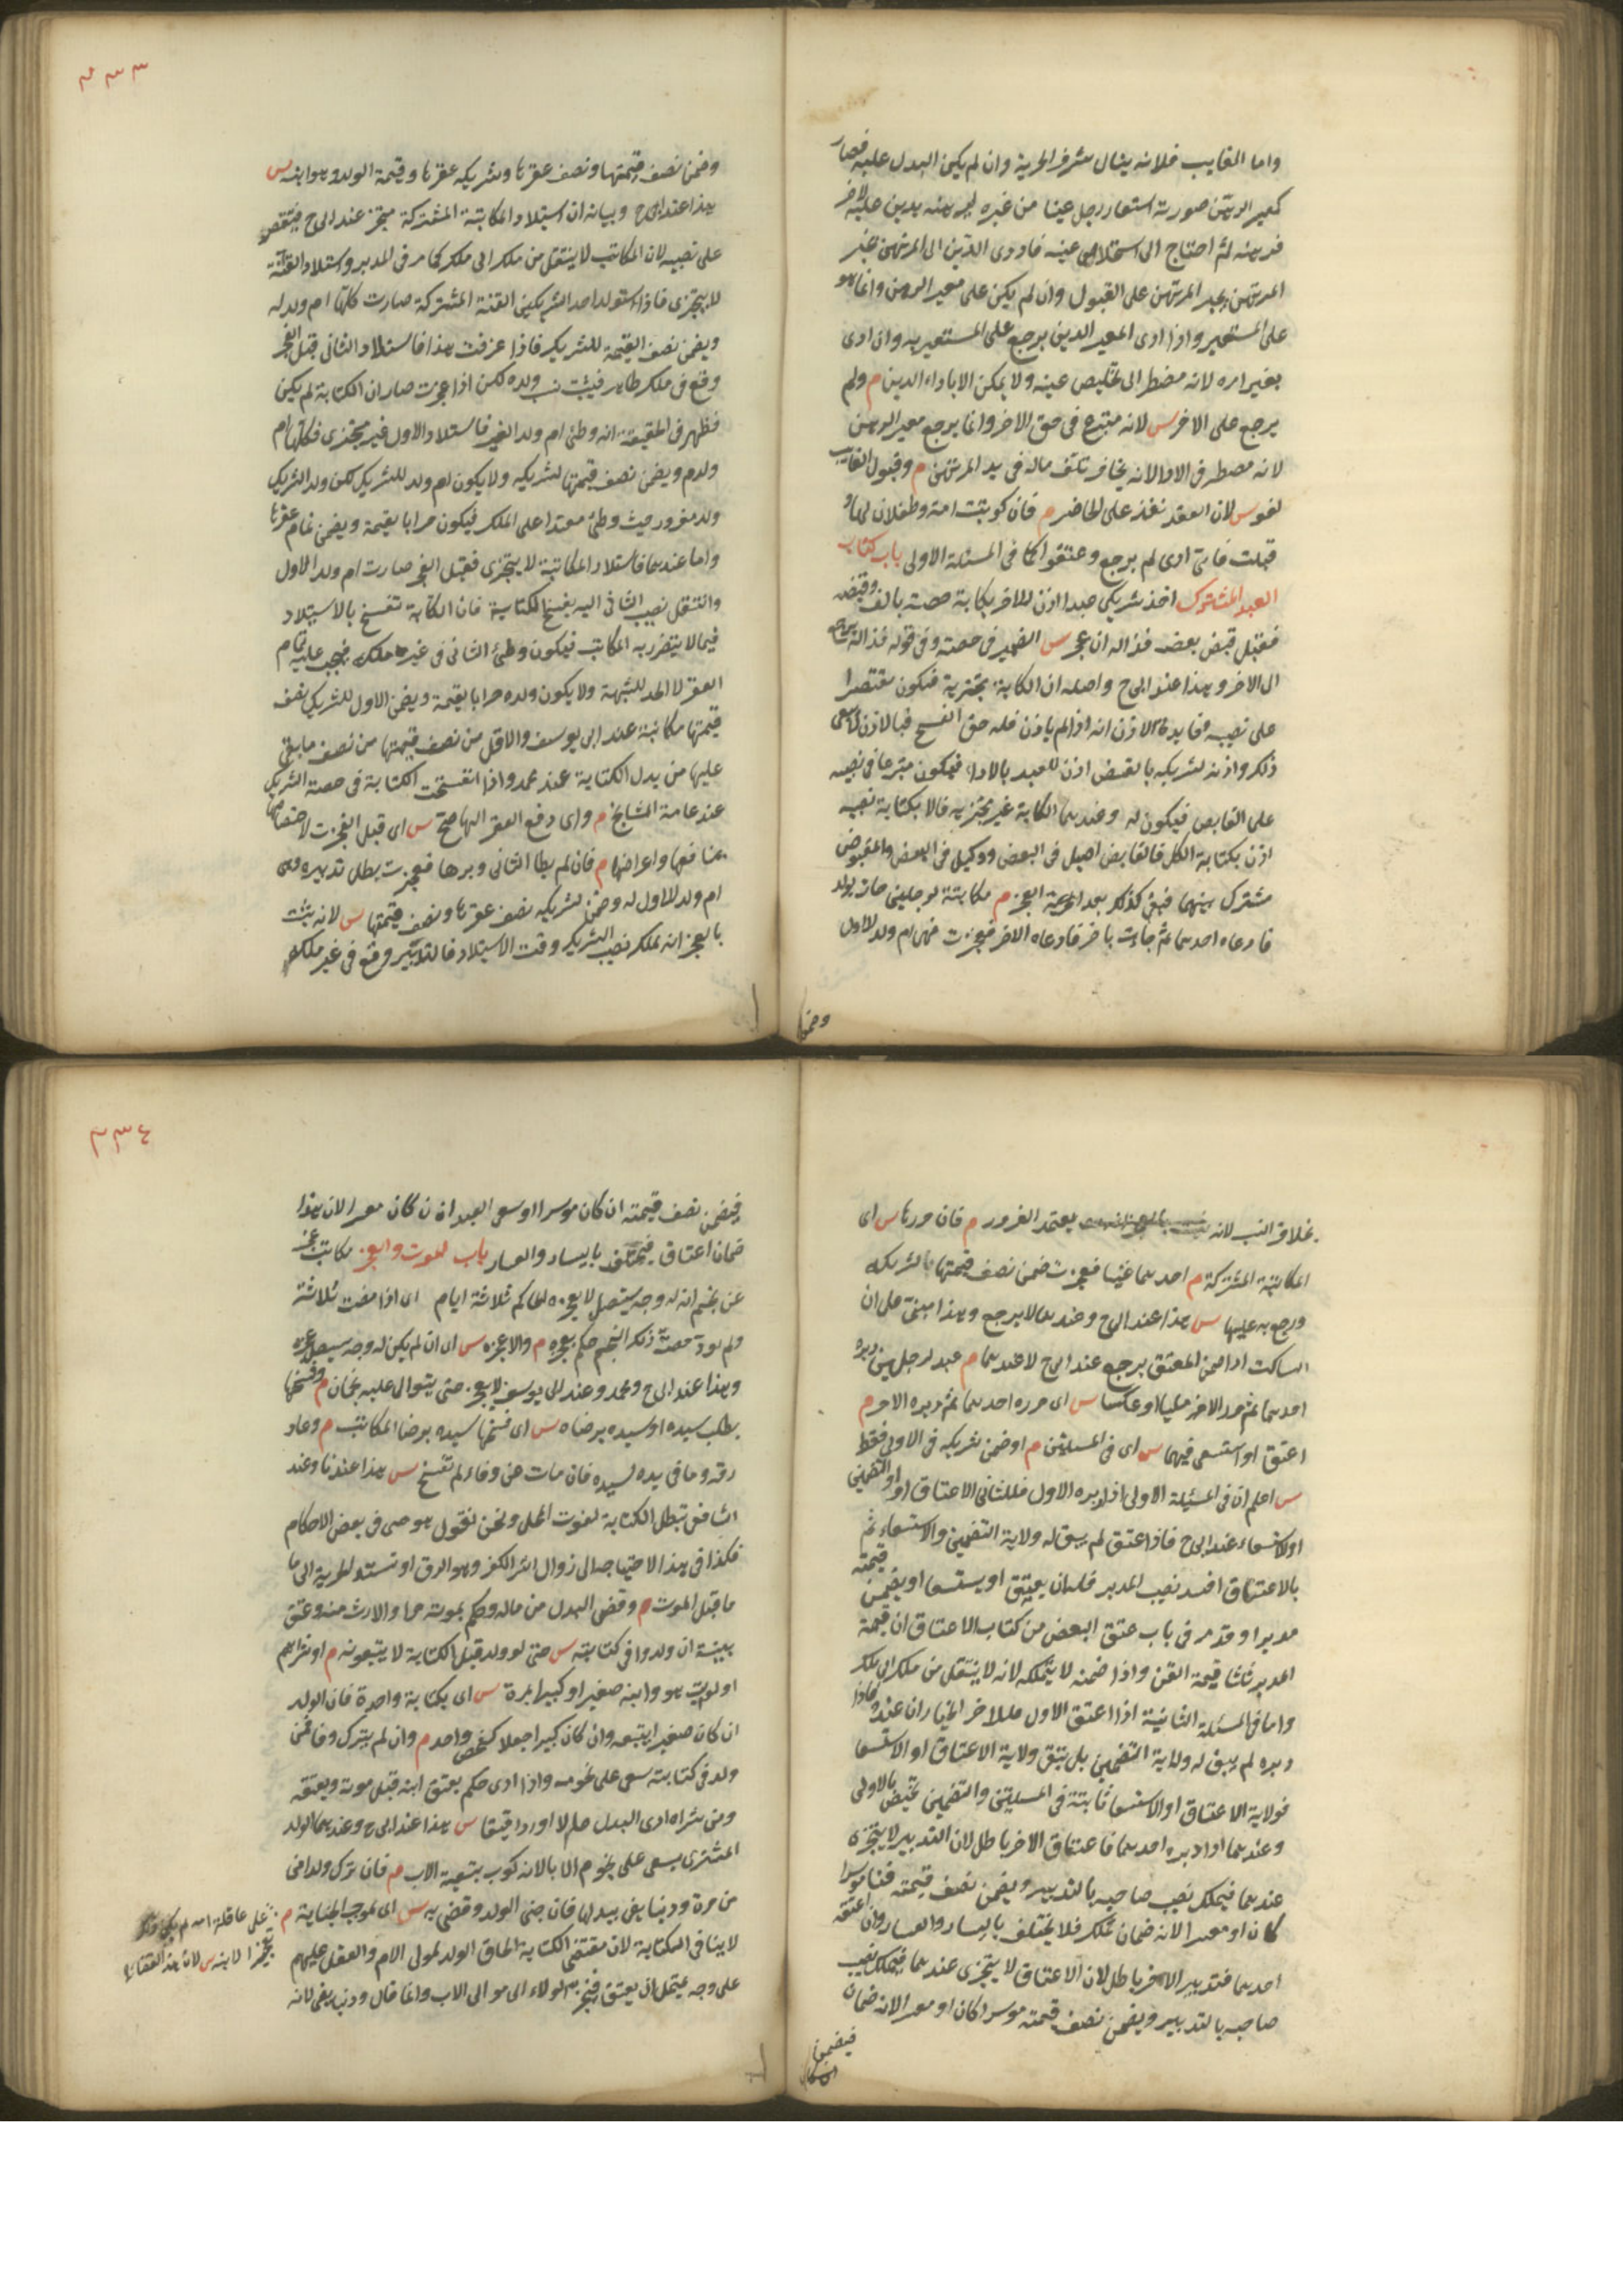 واما الغايب فلانه ينال شرف الحرية وان لم يكن البدل عليه فصار
كمعير الرهن صورته استعار رجل عينا من غيره ليرهنه بدين عليه لاخر
فرهنه ثم احتاج الى استخلاص عينه فادى الدين الى المرتهن يجبر
المرتهن يجبر المرتهن على القبول وان لم يكن على معير الرهن وانما هو
على المستعير واذا ادى المعير الدين يرجع على المستعير به وان ادى
بغير امره لانه مضطر الى تخليص عينه ولا يمكن الا باداء الدين م ولم
يرجع على الاخر س لانه متبرع في حق الاخر وانما يرجع معير الرهن
لانه مضطر في الادا لانه يخاف تلف ماله في يد المرتهن م وقبول الغايب
لغو س لان العقد نفذ على الحاضر م فان كوتبت امة وطفلان لها و
قبلت فاى ادى لم يرجع وعتقوا كما في المسئلة الاولى باب كتابة
العبد المشترك احد شريكي عبد اذن للاخر بكتابة حصته بالف وقبضه
ففعل قبض بعضه فذا له ان عجز س الضمير في حصته وفي قوله فذا له يرجع
الى الاخر وهذا عند ابي ح واصله ان الكتابة متجزية فتكون مقتصرا
على نصيبه وفايدة الاذن انه اذا لم ياذن فله حق الفسخ فبالاذن لا يبقى
ذلك واذنه لشريكه بالقبض اذن للعبد بالاداء فيكون متبرعا في نصيبه
على القابض فيكون له وعندهما الكتابة غير متجزية فالاذن بكتابة نصيبه
اذن بكتابة الكل فالقابض اصيل في البعض ووكيل في البعض والمقبوض
مشترك بينهما فبقي كذلك بعد العجز م مكاتبة لرجلين جات بولد
فادعاه احدهما ثم جاءت باخر فادعاه الاخر فعجزت فهي ام ولد للاول
وضمن
٣٣٣
وضمن نصف قيمتها ونصف عقرها وشريكه عقرها وقيمة الولد وهو ابنه س
هذا عند ابي ح وبيانه ان استيلاد المكاتبة المشتركة متجز عند ابي ح فيقتصر
على نصيبه لان المكاتب لا ينتقل من ملك الى ملك كما مر في المدبر واستيلاد القنة
لا يتجزى فاذا استولد احد الشريكين القنة المشتركة صارت كلها ام ولد له
ويضمن نصف القيمة للشريك فاذا عرفت هذا فاستيلاد الثاني قبل العجز
وقع في ملك ظاهر فيثبت نسب ولده لكن اذا عجزت صار ان الكتابة لم يكن
فظهر في الحقيقة انه وطئ ام ولد الغير فاستيلاد الاول غير متجزى فكلها ام
ولده ويضمن نصف قيمتها لشريكه ولا يكون ام ولد للشريك لكن ولد الشريك
ولد مغرور حيث وطئ معتمدا على الملك فيكون حرا بالقيمة ويضمن تمام عقرها
واما عندهما فاستيلاد المكاتبة لا يتجزى فقبل العجز صارت ام ولد الاول
وانتقل نصيب الثاني اليه بفسخ الكتابة فان الكتابة تفسخ بالاستيلاد
فيما لا يتضرر به المكاتب فيكون وطئ الثاني في غير ملكه فيجب عليه تمام
العقر لا الحد للشبهة ولا يكون ولده حرا بالقيمة ويضمن الاول للشريك نصف
قيمتها مكاتبة عند ابي يوسف والاقل من نصف قيمتها من نصف ما بقي
عليها من بدل الكتابة عند محمد واذا انفسخت الكتابة في حصة الشريك
عند عامة المشايخ م واى دفع العقر اليها صح س اى قبل العجز لاختصاصها
بمنافعها واعواضها م فان لم يطا الثاني ودبرها فعجزت بطل تدبيره وهى
ام ولد للاول له وضمن لشريكه نصف عقرها ونصف قيمتها س لانه يثبت
بالعجز انه تملك نصيب الشريك وقت الاستيلاد فالتدبير وقع في غير ملكه
بخلاف النسب لانه يعتمد الغرور م فان حررها س اى
المكاتبة المشتركة م احدهما غنيا فعجزت ضمن نصف قيمتها لشريكه
ورجع به عليها س هذا عند ابي ح وعندهما لا يرجع وهذا مبني على ان
الساكت اذا ضمن المعتق يرجع عند ابي ح لا عندهما م عبد لرجلين دبره
احدهما ثم حرر الاخر مليا او عكسا س اى حرره احدهما ثم دبره الاخر م
اعتق او استسعى فيهما س اى في المسئلتين م او ضمن شريكه في الاولى فقط
س اعلم ان في المسئلة الاولى اذا دبره الاول فللثاني الاعتاق او التضمين
او الاستسعاء عند ابي ح فاذا اعتق لم يبق له ولاية التضمين والاستسعاء ثم
بالاعتاق افسد نصيب المدبر فله ان يعتق او يستسعى او يضمن قيمته
مدبرا وقد مر في باب عتق البعض من كتاب الاعتاق ان قيمة
المدبر ثلثا قيمة القن واذا ضمنه لا يتملكه لانه لا ينتقل من ملك الى ملك
واما في المسئلة الثانية اذا اعتق الاول فللاخر الخيارات عنده فاذا
دبره لم يبق له ولاية التضمين بل يبقى ولاية الاعتاق او الاستسعا
فولاية الاعتاق او الاستسعا ثابتة في المسئلتين والتضمين يختص بالاولى
وعندهما اذا دبره احدهما فاعتاق الاخر باطل لان التدبير لا يتجزى
عندهما فيملك نصيب صاحبه بالتدبير ويضمن نصف قيمته قنا موسرا
كان او معسرا لانه ضمان تملك فلا يختلف باليسار والعسار وان اعتقه
احدهما فتدبير الاخر باطل لان الاعتاق لا يتجزى عندهما فيملك نصيب
صاحبه بالتدبير ويضمن نصف قيمته موسرا كان او معسرا لانه ضمان
فيضمن
٣٣٤
فيضمن نصف قيمته ان كان موسرا او سعى العبد ان كان معسرا لان هذا
ضمان اعتاق فيختلف باليسار والعسار باب الموت والعجز مكاتب عجز
عن نجم ان له وجه سيصل لا يعجزه الحاكم ثلاثة ايام اى اذا مضت ثلاثة
ذلك النجم حكم بعجزه م والا عجزه س اى ان لم يكن له وجه سيصل عجزه
وهذا عند ابي ح ومحمد وعند ابي يوسف لا يعجز حتى يتوالى عليه نجمان م وفسخها
بطلب سيده او سيده برضاه س اى فسخها سيده برضا المكاتب م وعاد
رقه وما في يده لسيده فان مات عن وفاء لم تفسخ س هذا عندنا وعند
الشافعي تبطل الكتابة لفوت المحل ونحن نقول هو حي في بعض الاحكام
فكذا في هذا الاحتياجه الى زوال اثر الكفر وهو الرق او تستند الحرية الى ما
ما قبل الموت م وقضى البدل من ماله وحكم بموته حرا والارث منه وعتق
بينة ان ولدوا في كتابته س حتى لو ولد قبل الكتابة لا يتبعونه م او شراهم
او كوتب هو وابنه صغيرا او كبيرا بمرة س اى بكتابة واحدة فان الولد
ان كان صغيرا يتبعه وان كان كبيرا جعلا كشخص واحد م وان لم يترك وفا فمن
ولد في كتابته سعى على نجومه واذا ادى حكم بعتق ابنه قبل موته وبعتقه
ومن شراه ادى البدل حالا او رد رقيقا س هذا عند ابي ح وعندهما الولد
المشترى يسعى على نجوم الاب لانه كوتب بتبعية الاب م فان ترك ولدا من
من حرة ودينا يفي ببدلها فان جنى الولد وقضى به س اى بموجب الجناية م
على عاقلة امه لم يكن ذلك
تعجيزا لابيه س لان هذا القضاء
لا ينافي الكتابة لان مقتضى الكتابة الحاق الولد لمولى الام والعقل عليهم
على وجه يحتمل ان يعتق فينجر الولاء الى موالى الاب وانما قال ودينا يفي لانه